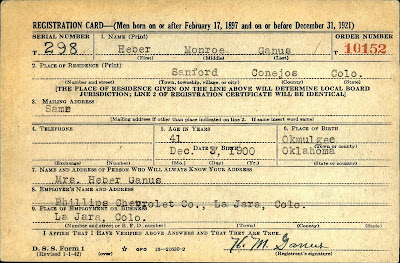 REGISTRATION CARD—(Men born on or after February 17, 1897 and on or before December 31, 1921)
SERIAL NUMBER 1. NAME (Print) ORDER NUMBER
T. 298 Heber Monroe Ganus T. 10152
(First) (Middle) (Last)
2. PLACE OF RESIDENCE (Print)
Sanford Conejos Colo.
(Number and street) (Town, township, village, or city) (County) (State)
[THE PLACE OF RESIDENCE GIVEN ON THE LINE ABOVE WILL DETERMINE LOCAL BOARD
JURISDICTION; LINE 2 OF REGISTRATION CERTIFICATE WILL BE IDENTICAL]
3. MAILING ADDRESS
Same
[Mailing address if other than place indicated on line 2. If same insert word same]
4. TELEPHONE 5. AGE IN YEARS 6. PLACE OF BIRTH
41 Okmulgee
DATE OF BIRTH (Town or county)
Dec. 3, 1900 Oklahoma
(Exchange) (Number) (Mo.) (Day) (Yr.) (State or country)
7. NAME AND ADDRESS OF PERSON WHO WILL ALWAYS KNOW YOUR ADDRESS
Mrs. Heber Ganus
8. EMPLOYER'S NAME AND ADDRESS
Phillips Chevrolet Co., La Jara, Colo.
9. PLACE OF EMPLOYMENT OR BUSINESS
La Jara, Colo.
(Number and street or R. F. D. number) (Town) (County) (State)
I AFFIRM THAT I HAVE VERIFIED ABOVE ANSWERS AND THAT THEY ARE TRUE.
D. S. S. Form 1 GPO 16—21630-2 H. M. Ganus
(Revised 1-1-42) (over) (Registrant's signature)